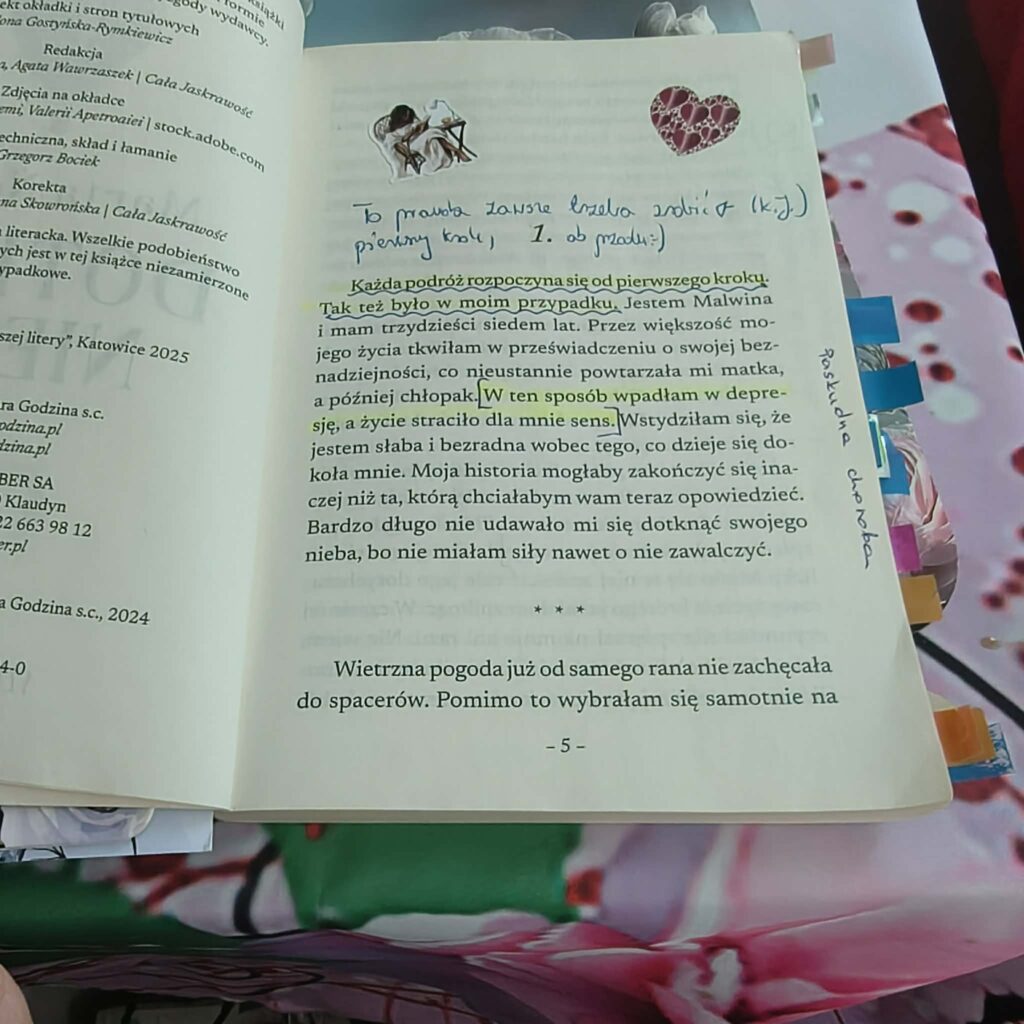 książki
formie
ekt okładki i stron tytułowych
gody wydawcy.
ona Gostyńska-Rymkiewicz
Redakcja
a, Agata Wawrzaszek | Cała Jaskrawość
Zdjęcia na okładce
emi, Valerii Apetroaiei | stock.adobe.com
echniczna, skład i łamanie
Grzegorz Bociek
Korekta
na Skowrońska | Cała Jaskrawość
literacka. Wszelkie podobieństwo
ych jest w tej książce niezamierzone
ypadkowe.
szej litery”, Katowice 2025
ra Godzina s.c.
odzina.pl
dzina.pl
BER SA
Klaudyn
22 663 98 12
er.pl
a Godzina s.c., 2024
4-0
To prawda zawsze trzeba zrobić (k.j.)
pierwszy krok, do przodu :)
1.
Każda podróż rozpoczyna się od pierwszego kroku.
Tak też było w moim przypadku. Jestem Malwina
i mam trzydzieści siedem lat. Przez większość mo-
jego życia tkwiłam w przeświadczeniu o swojej bez-
nadziejności, co nieustannie powtarzała mi matka,
a później chłopak. W ten sposób wpadłam w depre-
sję, a życie straciło dla mnie sens. Wstydziłam się, że
jestem słaba i bezradna wobec tego, co dzieje się do-
koła mnie. Moja historia mogłaby zakończyć się ina-
czej niż ta, którą chciałabym wam teraz opowiedzieć.
Bardzo długo nie udawało mi się dotknąć swojego
nieba, bo nie miałam siły nawet o nie zawalczyć.
* * *
Wietrzna pogoda już od samego rana nie zachęcała
do spacerów. Pomimo to wybrałam się samotnie na
– 5 –
paskudna choroba